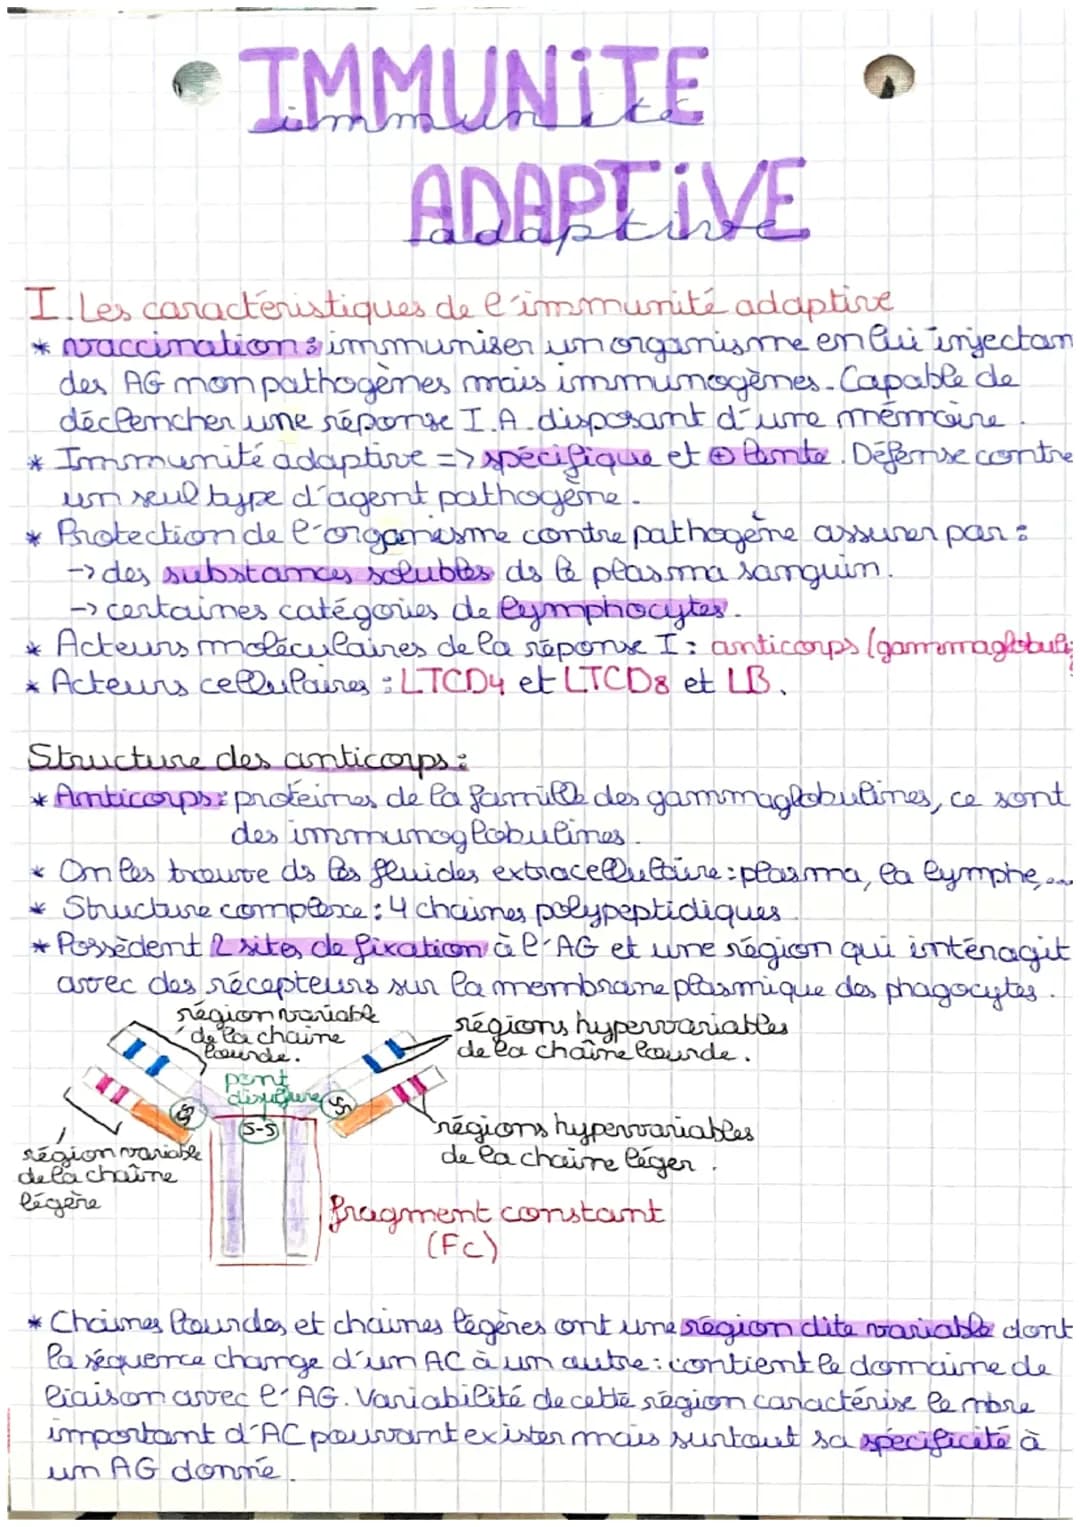 IMMUNITE
immunité
ADAPTIVE
adaptive
I. Les caractéristiques de l'immunité adaptive
* vaccination : immuniser un organisme en lui injectan
des AG non pathogènes mais immunogènes. Capable de
déclencher une réponse I.A. disposant d'une mémoire.
* Immunité adaptive => spécifique et ⊕ lente. Défense contre
un seul type d'agent pathogène.
* Protection de l'organisme contre pathogène assurer par :
-> des substances solubles ds le plasma sanguin.
-> certaines catégories de lymphocytes.
* Acteurs moléculaires de la réponse I : anticorps (gammaglobuli
* Acteurs cellulaires : LTCD4 et LTCD8 et LB.
Structure des anticorps :
* Anticorps : protéines de la famille des gammaglobulines, ce sont
des immunoglobulines.
* On les trouve ds les fluides extracellulaire : plasma, la lymphe,...
* Structure complexe : 4 chaines polypeptidiques
* Possèdent 2 sites de fixation à l'AG et une région qui intéragit
avec des récepteurs sur la membrane plasmique des phagocytes.
région variable
de la chaine
lourde.
régions hypervariables
de la chaîne lourde.
pont
disulfure
S-S
S-S
S-S
régions hypervariables
de la chaine léger.
région variable
de la chaîne
légère
fragment constant
(Fc)
* Chaines lourdes et chaines légères ont une région dite variable dont
la séquence change d'un AC à un autre : contient le domaine de
liaison avec l'AG. Variabilité de cette région caractérise le nbre
important d'AC pouvant exister mais surtout sa spécificité à
un AG donné.